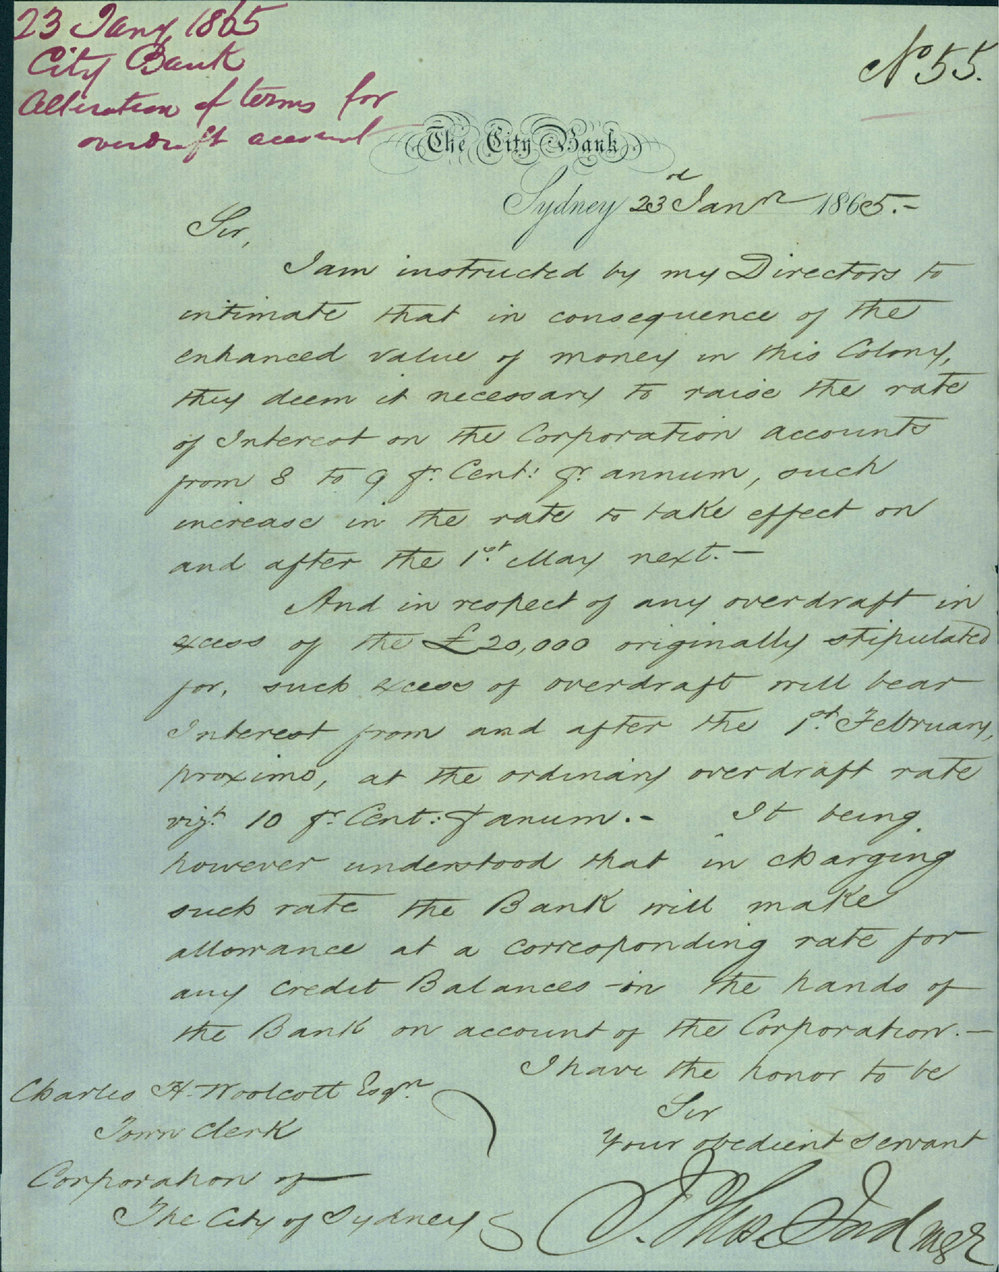 23 Jany 1865
City Bank
Alteration of terms for
overdraft account
No 55.
The City Bank.
Sydney 23rd Janr 1865.-
Sir,
I am instructed by my Directors to
intimate that in consequence of the
enhanced value of money in this Colony,
they deem it necessary to raise the rate
of Interest on the Corporation accounts
from 8 to 9 pr. Cent: pr. annum, such
increase in the rate to take effect on
and after the 1st. May next.-
And in respect of any overdraft in
excess of the £20,000 originally stipulated
for, such excess of overdraft will bear
Interest from and after the 1st. February,
proximo, at the ordinary overdraft rate
vizt. 10 pr. Cent: pr anum.- It being
however understood that in charging
such rate the Bank will make
allowance at a corresponding rate for
any Credit Balances in the hands of
the Bank on account of the Corporation.-
I have the honor to be
Sir
Your obedient Servant
Mgr
Charles H. Woolcott Esqr.
Town Clerk
Corporation of
The City of Sydney